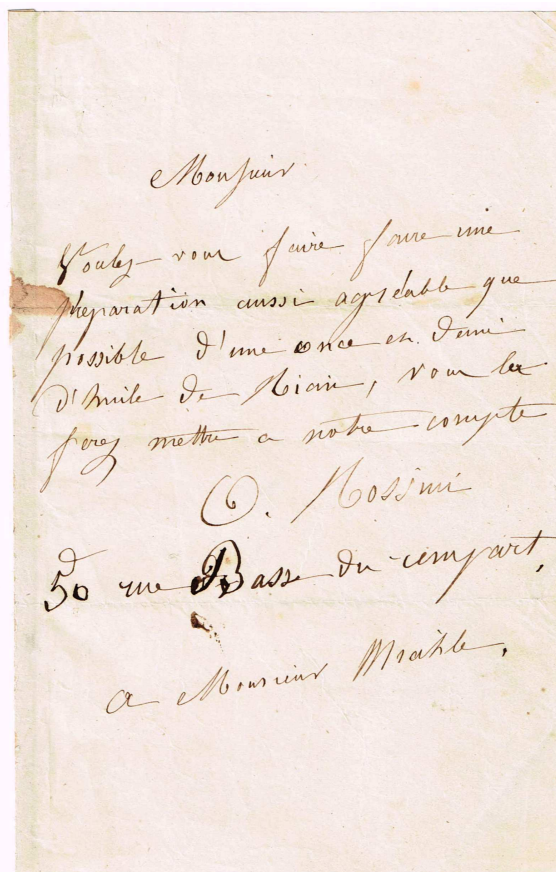 Monsieur
Voulez-vous faire faire une
préparation aussi agréable que
possible d'une once et demi
d'huile de Ricin, vous les
ferez mettre a notre compte
O. Rossini
50 rue Basse du rempart,
a Monsieur Mialhe,